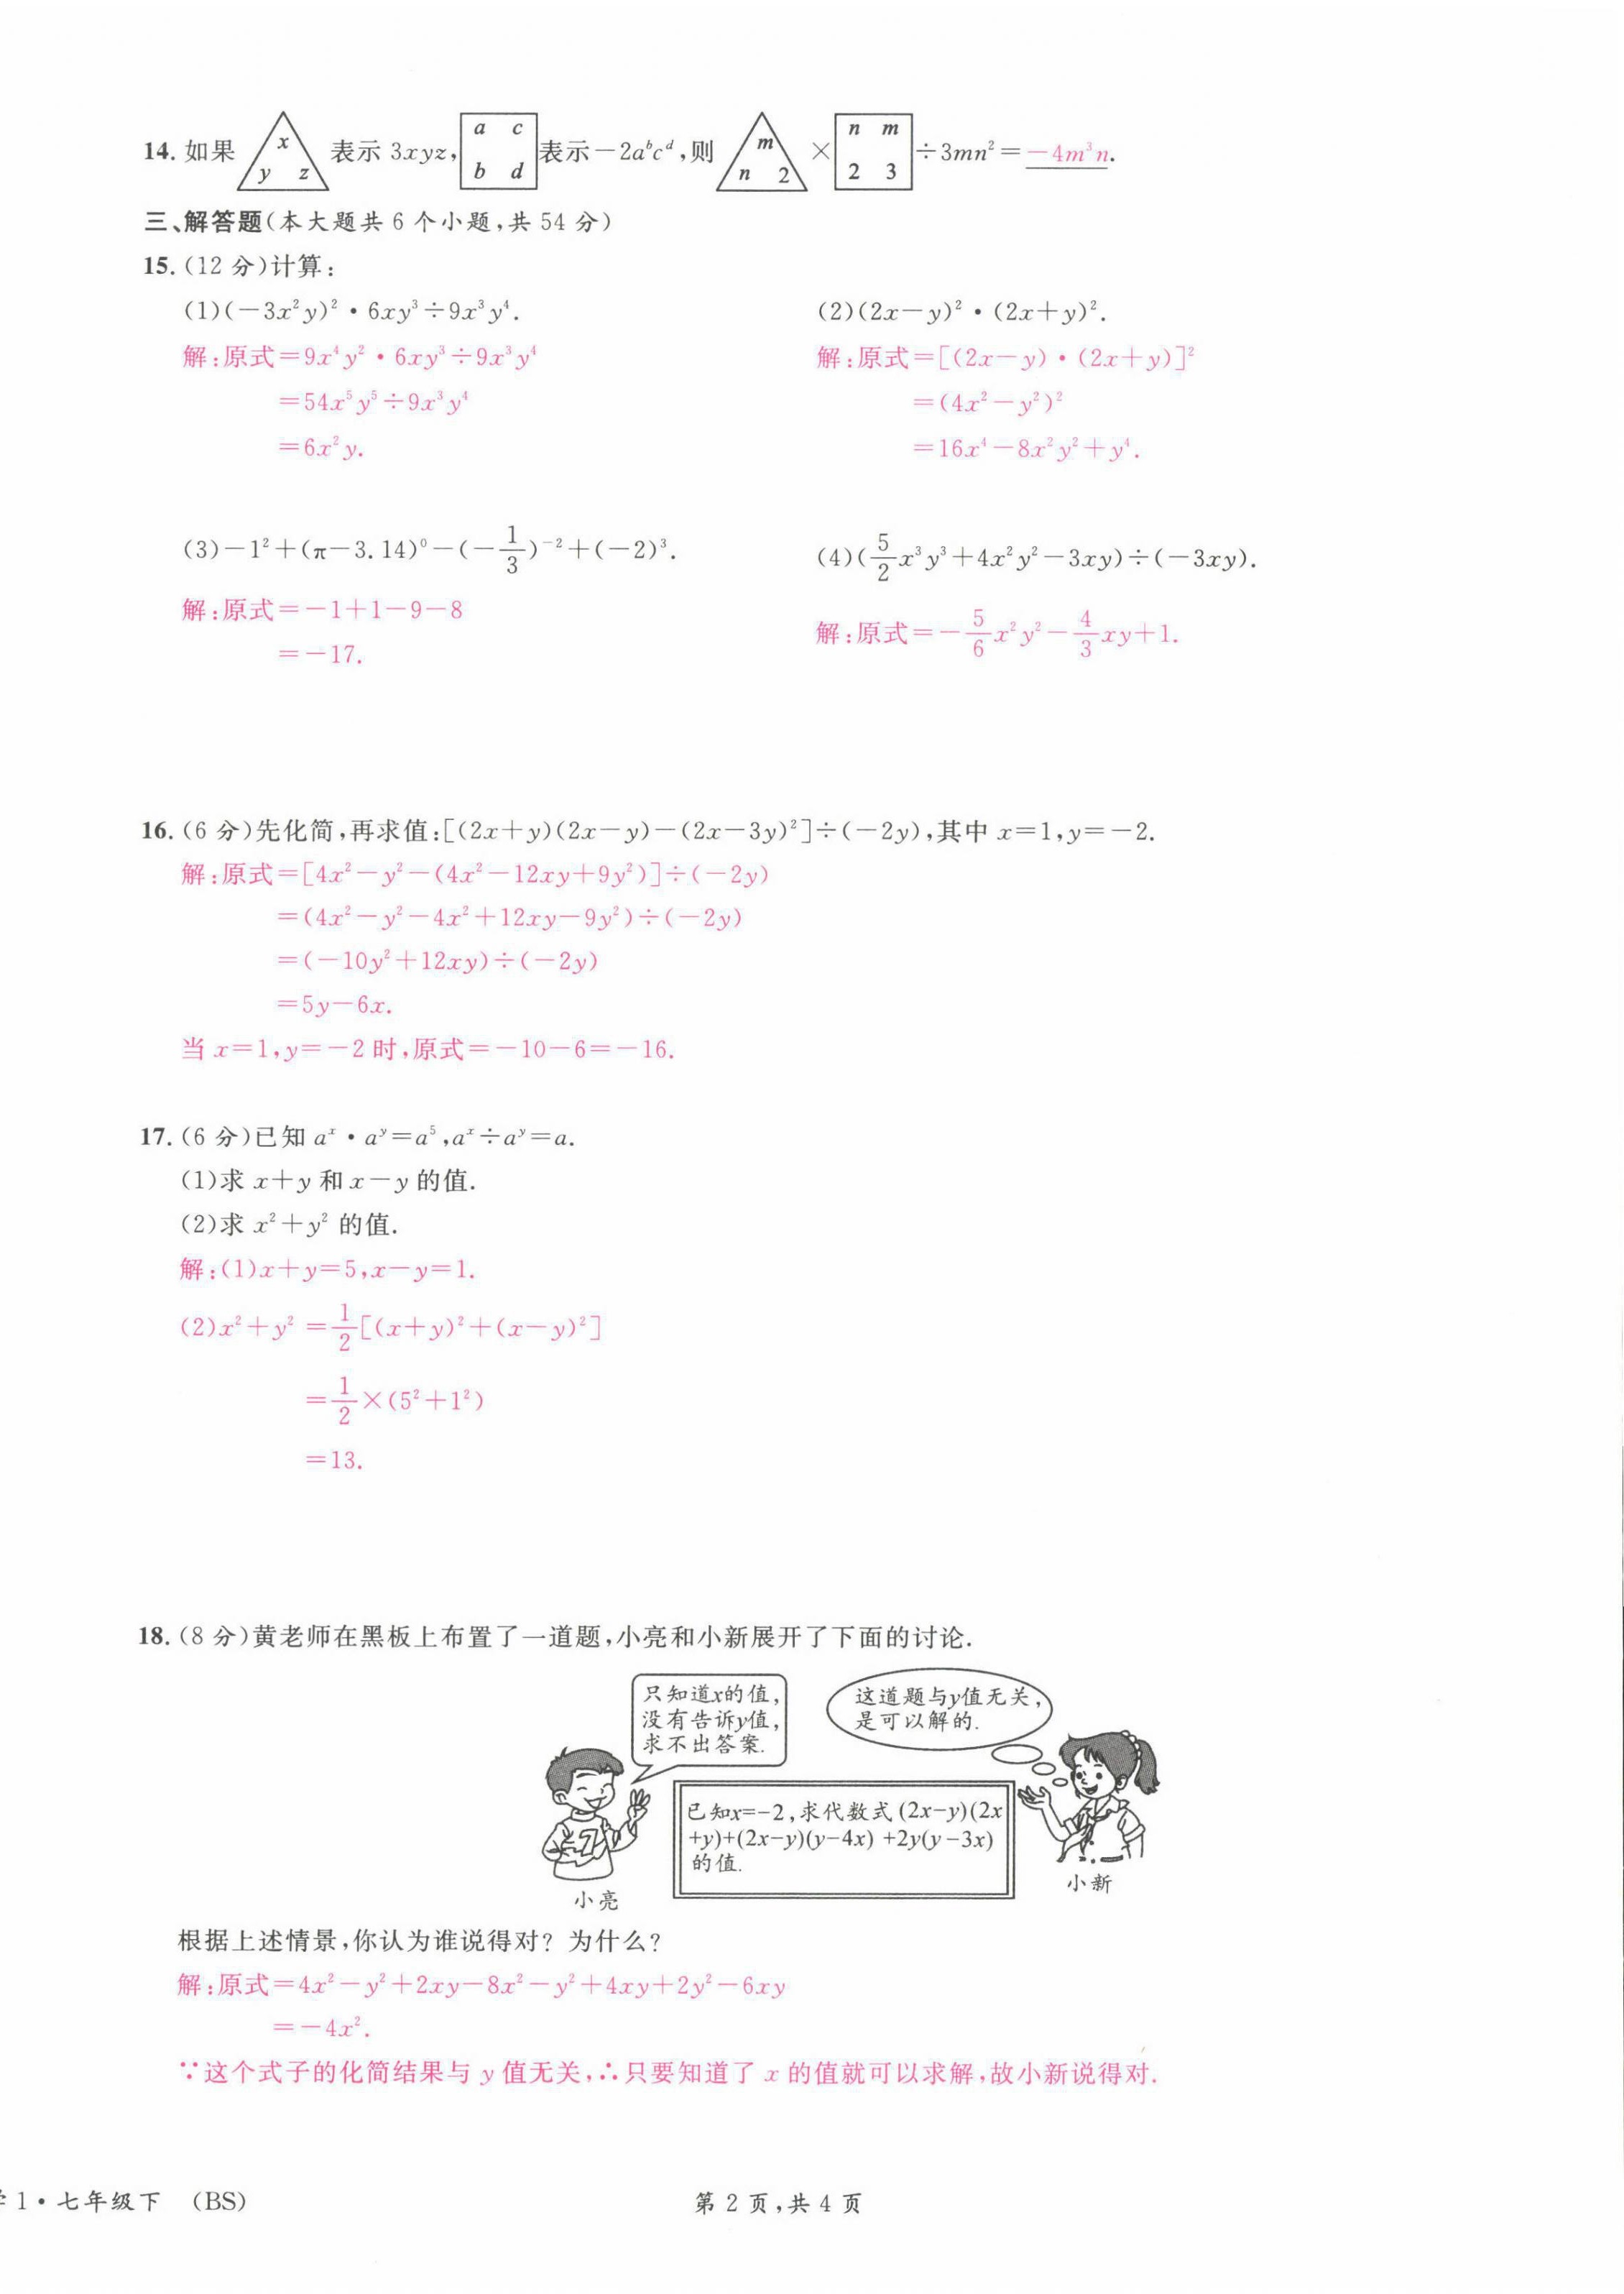 14. 如果 x y z 表示 3xyz, a c b d 表示 −2aᵇcᵈ, 则 m n 2 × n m 2 3 ÷3mn²=−4m³n.
三、解答题(本大题共 6 个小题,共 54 分)
15. (12 分)计算:
(1)(−3x²y)²·6xy³÷9x³y⁴.
(2)(2x−y)²·(2x+y)².
解:原式=9x⁴y²·6xy³÷9x³y⁴
解:原式=[(2x−y)·(2x+y)]²
=54x⁵y⁵÷9x³y⁴
=(4x²−y²)²
=6x²y.
=16x⁴−8x²y²+y⁴.
(3)−1²+(π−3.14)⁰−(−1/3)⁻²+(−2)³.
(4)(5/2x³y³+4x²y²−3xy)÷(−3xy).
解:原式=−1+1−9−8
解:原式=−5/6x²y²−4/3xy+1.
=−17.
16. (6 分)先化简,再求值:[(2x+y)(2x−y)−(2x−3y)²]÷(−2y),其中 x=1,y=−2.
解:原式=[4x²−y²−(4x²−12xy+9y²)]÷(−2y)
=(4x²−y²−4x²+12xy−9y²)÷(−2y)
=(−10y²+12xy)÷(−2y)
=5y−6x.
当 x=1,y=−2 时,原式=−10−6=−16.
17. (6 分)已知 aˣ·aʸ=a⁵,aˣ÷aʸ=a.
(1)求 x+y 和 x−y 的值.
(2)求 x²+y² 的值.
解:(1)x+y=5,x−y=1.
(2)x²+y²=1/2[(x+y)²+(x−y)²]
=1/2×(5²+1²)
=13.
18. (8 分)黄老师在黑板上布置了一道题,小亮和小新展开了下面的讨论.
只知道x的值,
没有告诉y值,
求不出答案.
这道题与y值无关,
是可以解的.
已知x=−2,求代数式(2x−y)(2x
+y)+(2x−y)(y−4x)+2y(y−3x)
的值.
小亮
小新
根据上述情景,你认为谁说得对? 为什么?
解:原式=4x²−y²+2xy−8x²−y²+4xy+2y²−6xy
=−4x².
∵这个式子的化简结果与 y 值无关,∴只要知道了 x 的值就可以求解,故小新说得对.
1·七年级下 (BS)
第 2 页,共 4 页